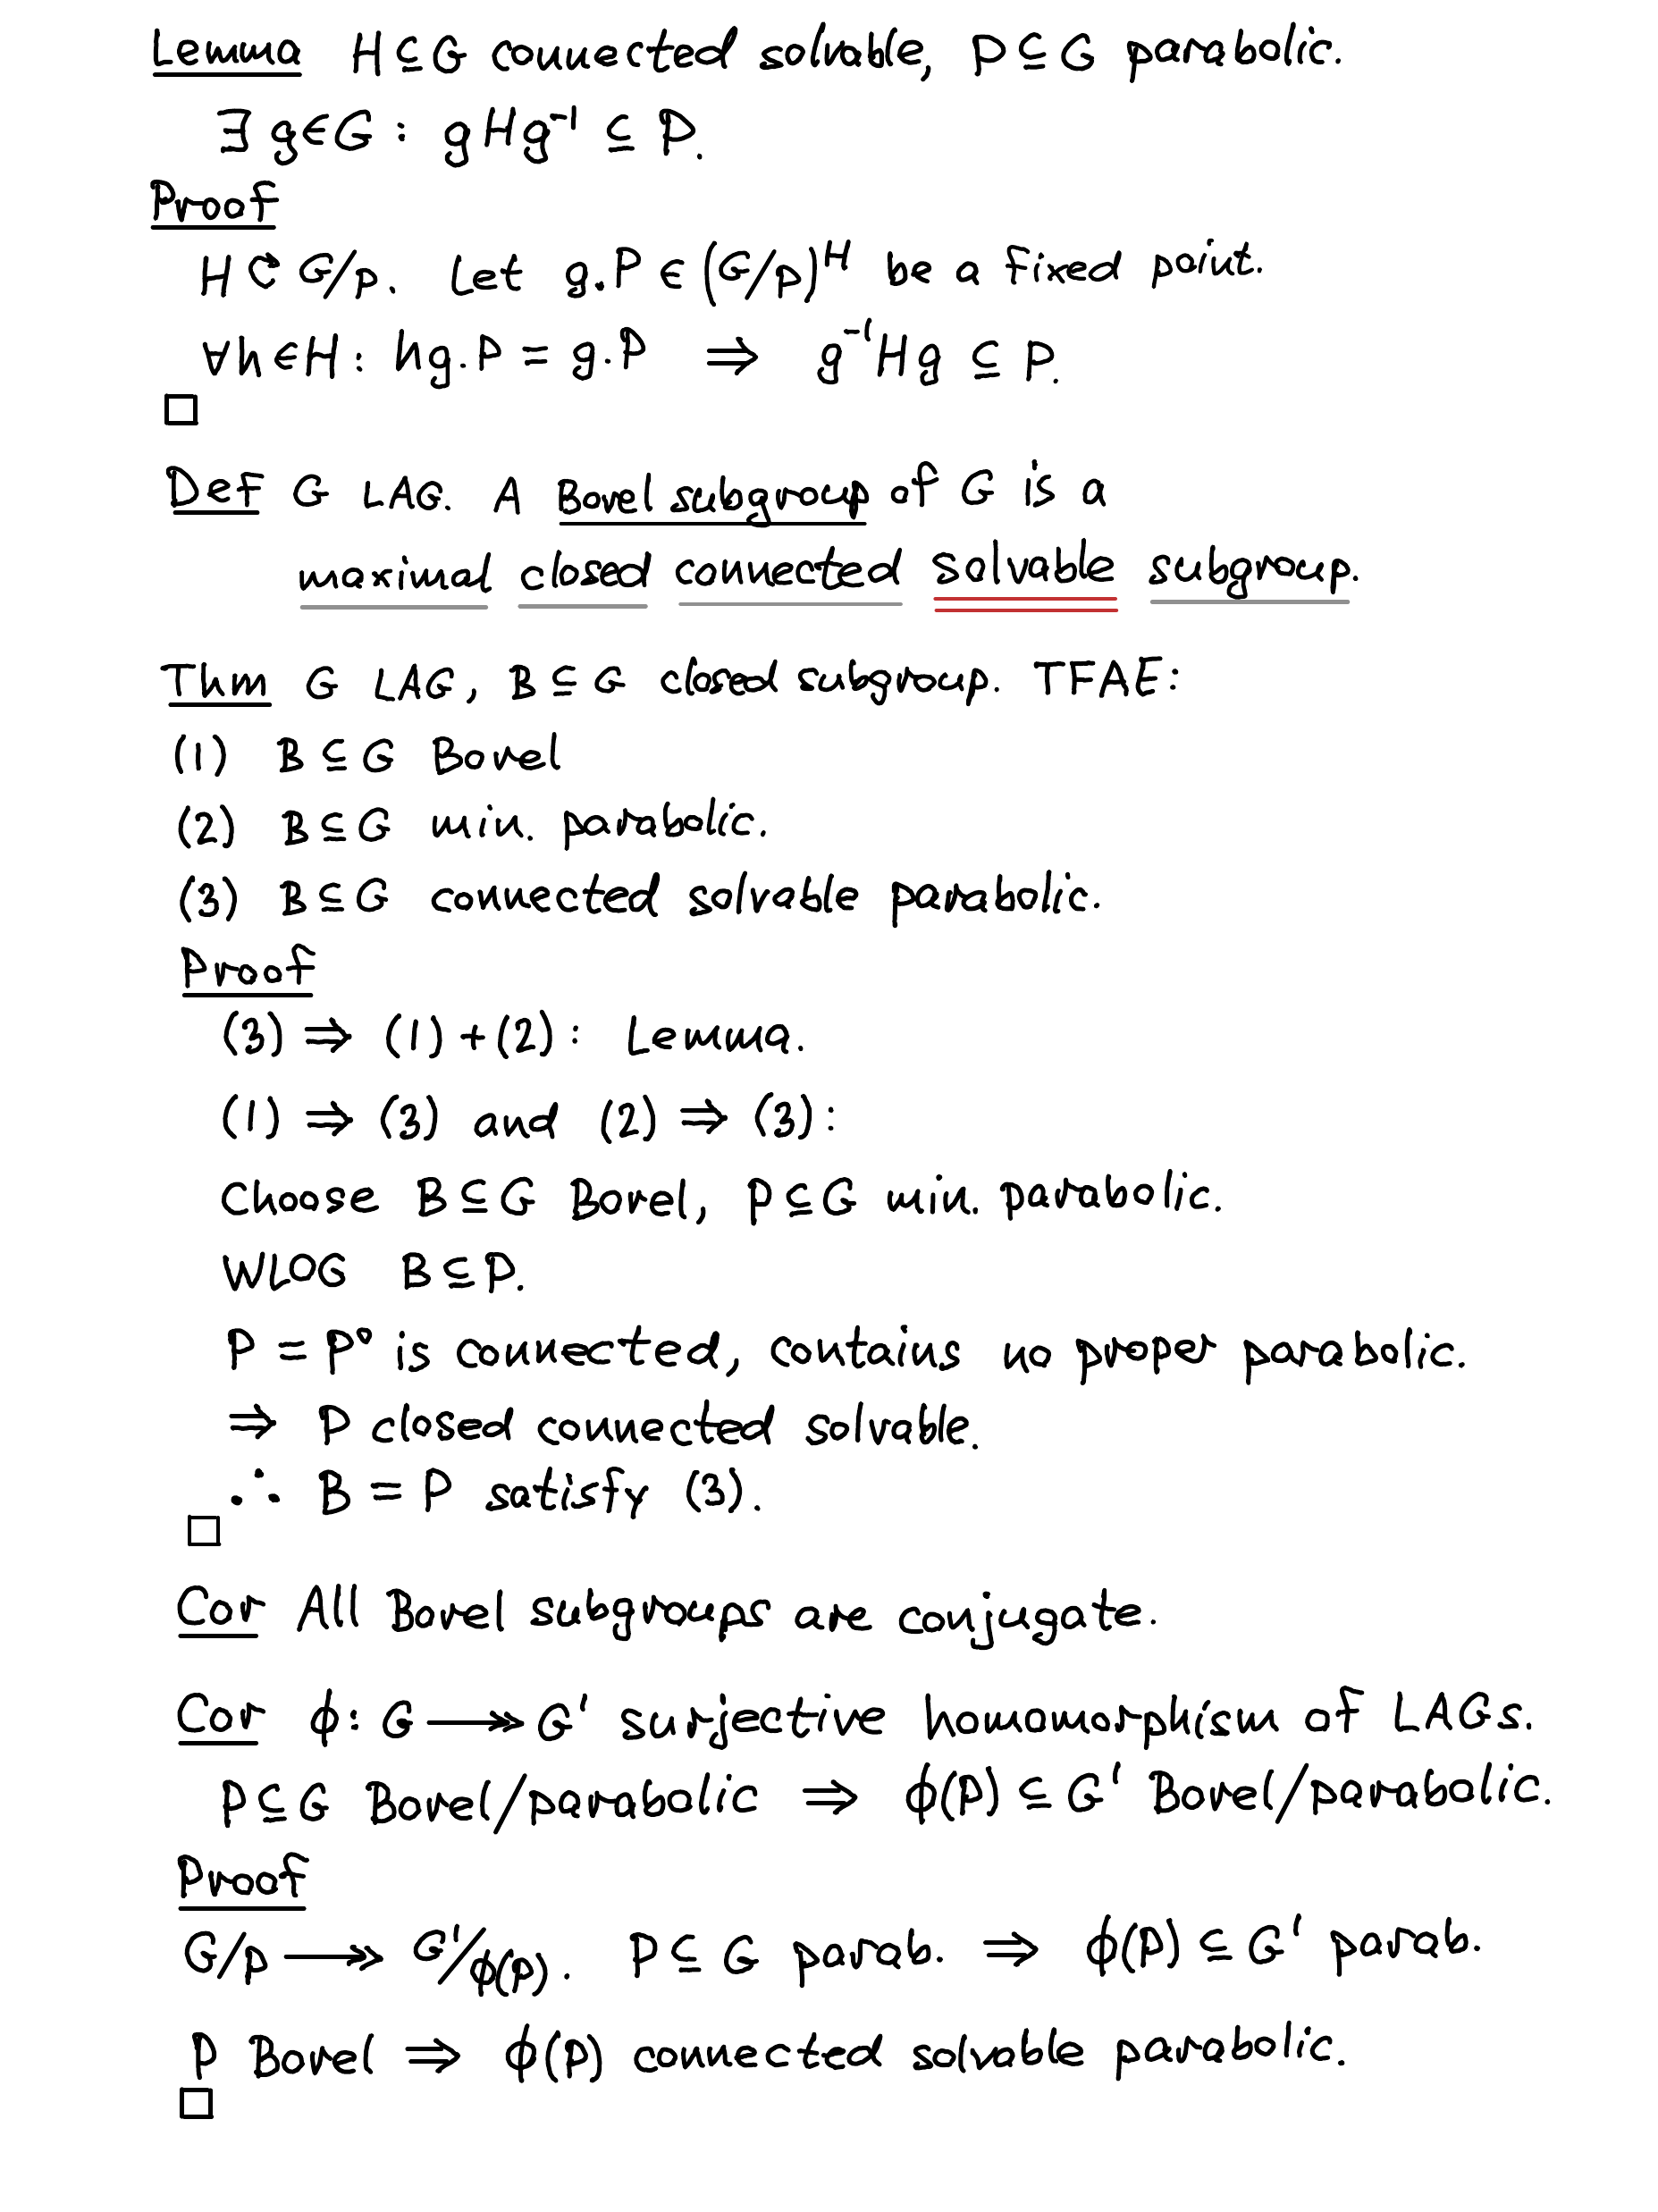 Lemma H ⊆ G connected solvable, P ⊆ G parabolic.
∃ g ∈ G : gHg⁻¹ ⊆ P.
Proof
H ↻ G/P. Let g.P ∈ (G/P)ᴴ be a fixed point.
∀h ∈ H : hg.P = g.P ⇒ g⁻¹Hg ⊆ P.
□
Def G LAG. A Borel subgroup of G is a
maximal closed connected solvable subgroup.
Thm G LAG, B ⊆ G closed subgroup. TFAE:
(1) B ⊆ G Borel
(2) B ⊆ G min. parabolic.
(3) B ⊆ G connected solvable parabolic.
Proof
(3) ⇒ (1) + (2) : Lemma.
(1) ⇒ (3) and (2) ⇒ (3) :
Choose B ⊆ G Borel, P ⊆ G min. parabolic.
WLOG B ⊆ P.
P = P° is connected, contains no proper parabolic.
⇒ P closed connected solvable.
∴ B = P satisfy (3).
□
Cor All Borel subgroups are conjugate.
Cor ϕ : G ↠ G' surjective homomorphism of LAGs.
P ⊆ G Borel/parabolic ⇒ ϕ(P) ⊆ G' Borel/parabolic.
Proof
G/P ↠ G'/ϕ(P). P ⊆ G parab. ⇒ ϕ(P) ⊆ G' parab.
P Borel ⇒ ϕ(P) connected solvable parabolic.
□